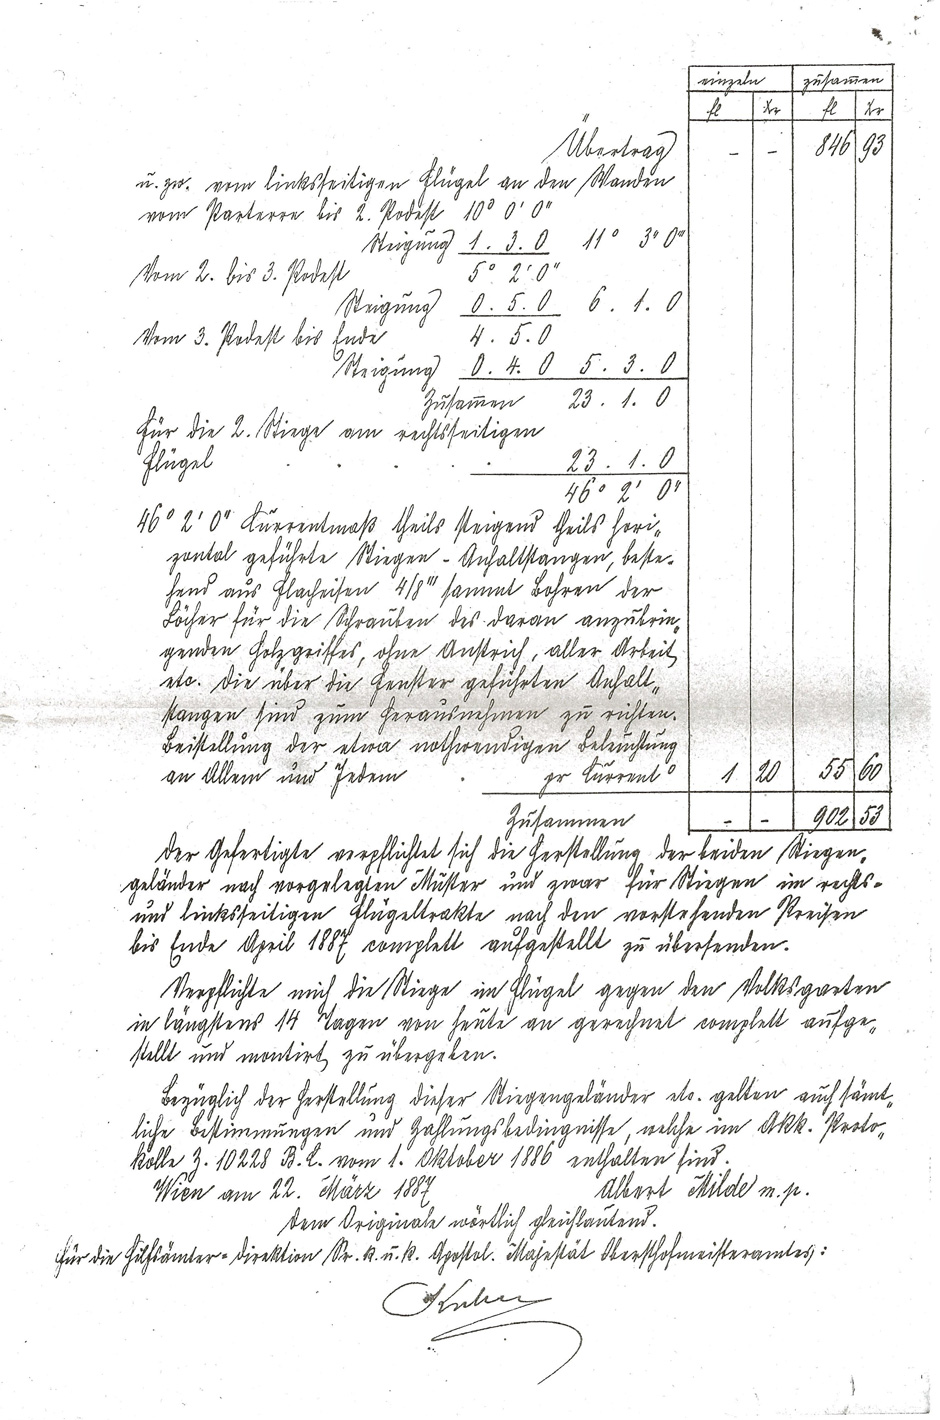 einzeln zusammen
fl Xr fl Xr
Übertrag - - 846 93
u. zw. vom linksseitigen Flügel an den Wanden
vom Parterre bis 2. Podest 10° 0' 0"
Steigung 1. 3. 0 11° 3" 0"
Vom 2. bis 3. Podest 5° 2' 0"
Steigung 0. 5. 0 6. 1. 0
Vom 3. Podest bis Ende 4. 5. 0
Steigung 0. 4. 0 5. 3. 0
Zusammen 23. 1. 0
Für die 2. Stiege am rechtsseitigen
Flügel . . . . 23. 1. 0
46° 2' 0"
46° 2' 0" Currentmaß theils steigend theils hori„
zontal geführte Stiegen - Anhaltstangen, beste-
hend aus Flacheisen 4/8''' sammt Bohren der
Löcher für die Schrauben des daran anzubrin„
genden Holzgriffes, ohne Anstrich, aller Arbeit
etc. Die über die Fenster geführten Anhalt„
stangen sind zum Herausnehmen zu richten.
Beistellung der etwa nothwendigen Beleuchtung
an Allem und Jedem . pr Current° 1 20 55 60
Zusammen - - 902 53
Der Gefertigte verpflichtet sich die Herstellung der beiden Stiegen„
geländer nach vorgelegten Muster und zwar für Stiegen im rechts-
und linksseitigen Flügeltrakte nach den vorstehenden Preisen
bis Ende April 1887 complett aufgestellt zu übersenden.
Verpflichte mich die Stiege im Flügel gegen den Volksgarten
in längstens 14 Tagen von heute an gerechnet complett aufge„
stellt und montirt zu übergeben.
Bezüglich der Herstellung dieser Stiegengeländer etc. gelten auch sämt„
liche Bestimmungen und Zahlungsbedingnisse, welche im Akk. Proto„
kolle Z. 10228 B. C. vom 1. Oktober 1886 enthalten sind.
Wien am 22. März 1887 Albert Milde m. p.
Dem Originale wörtlich gleichlautend.
Für die Hilfsämter-Direktion Sr. k. u. k. Apostol. Majestät Obersthofmeisteramtes: